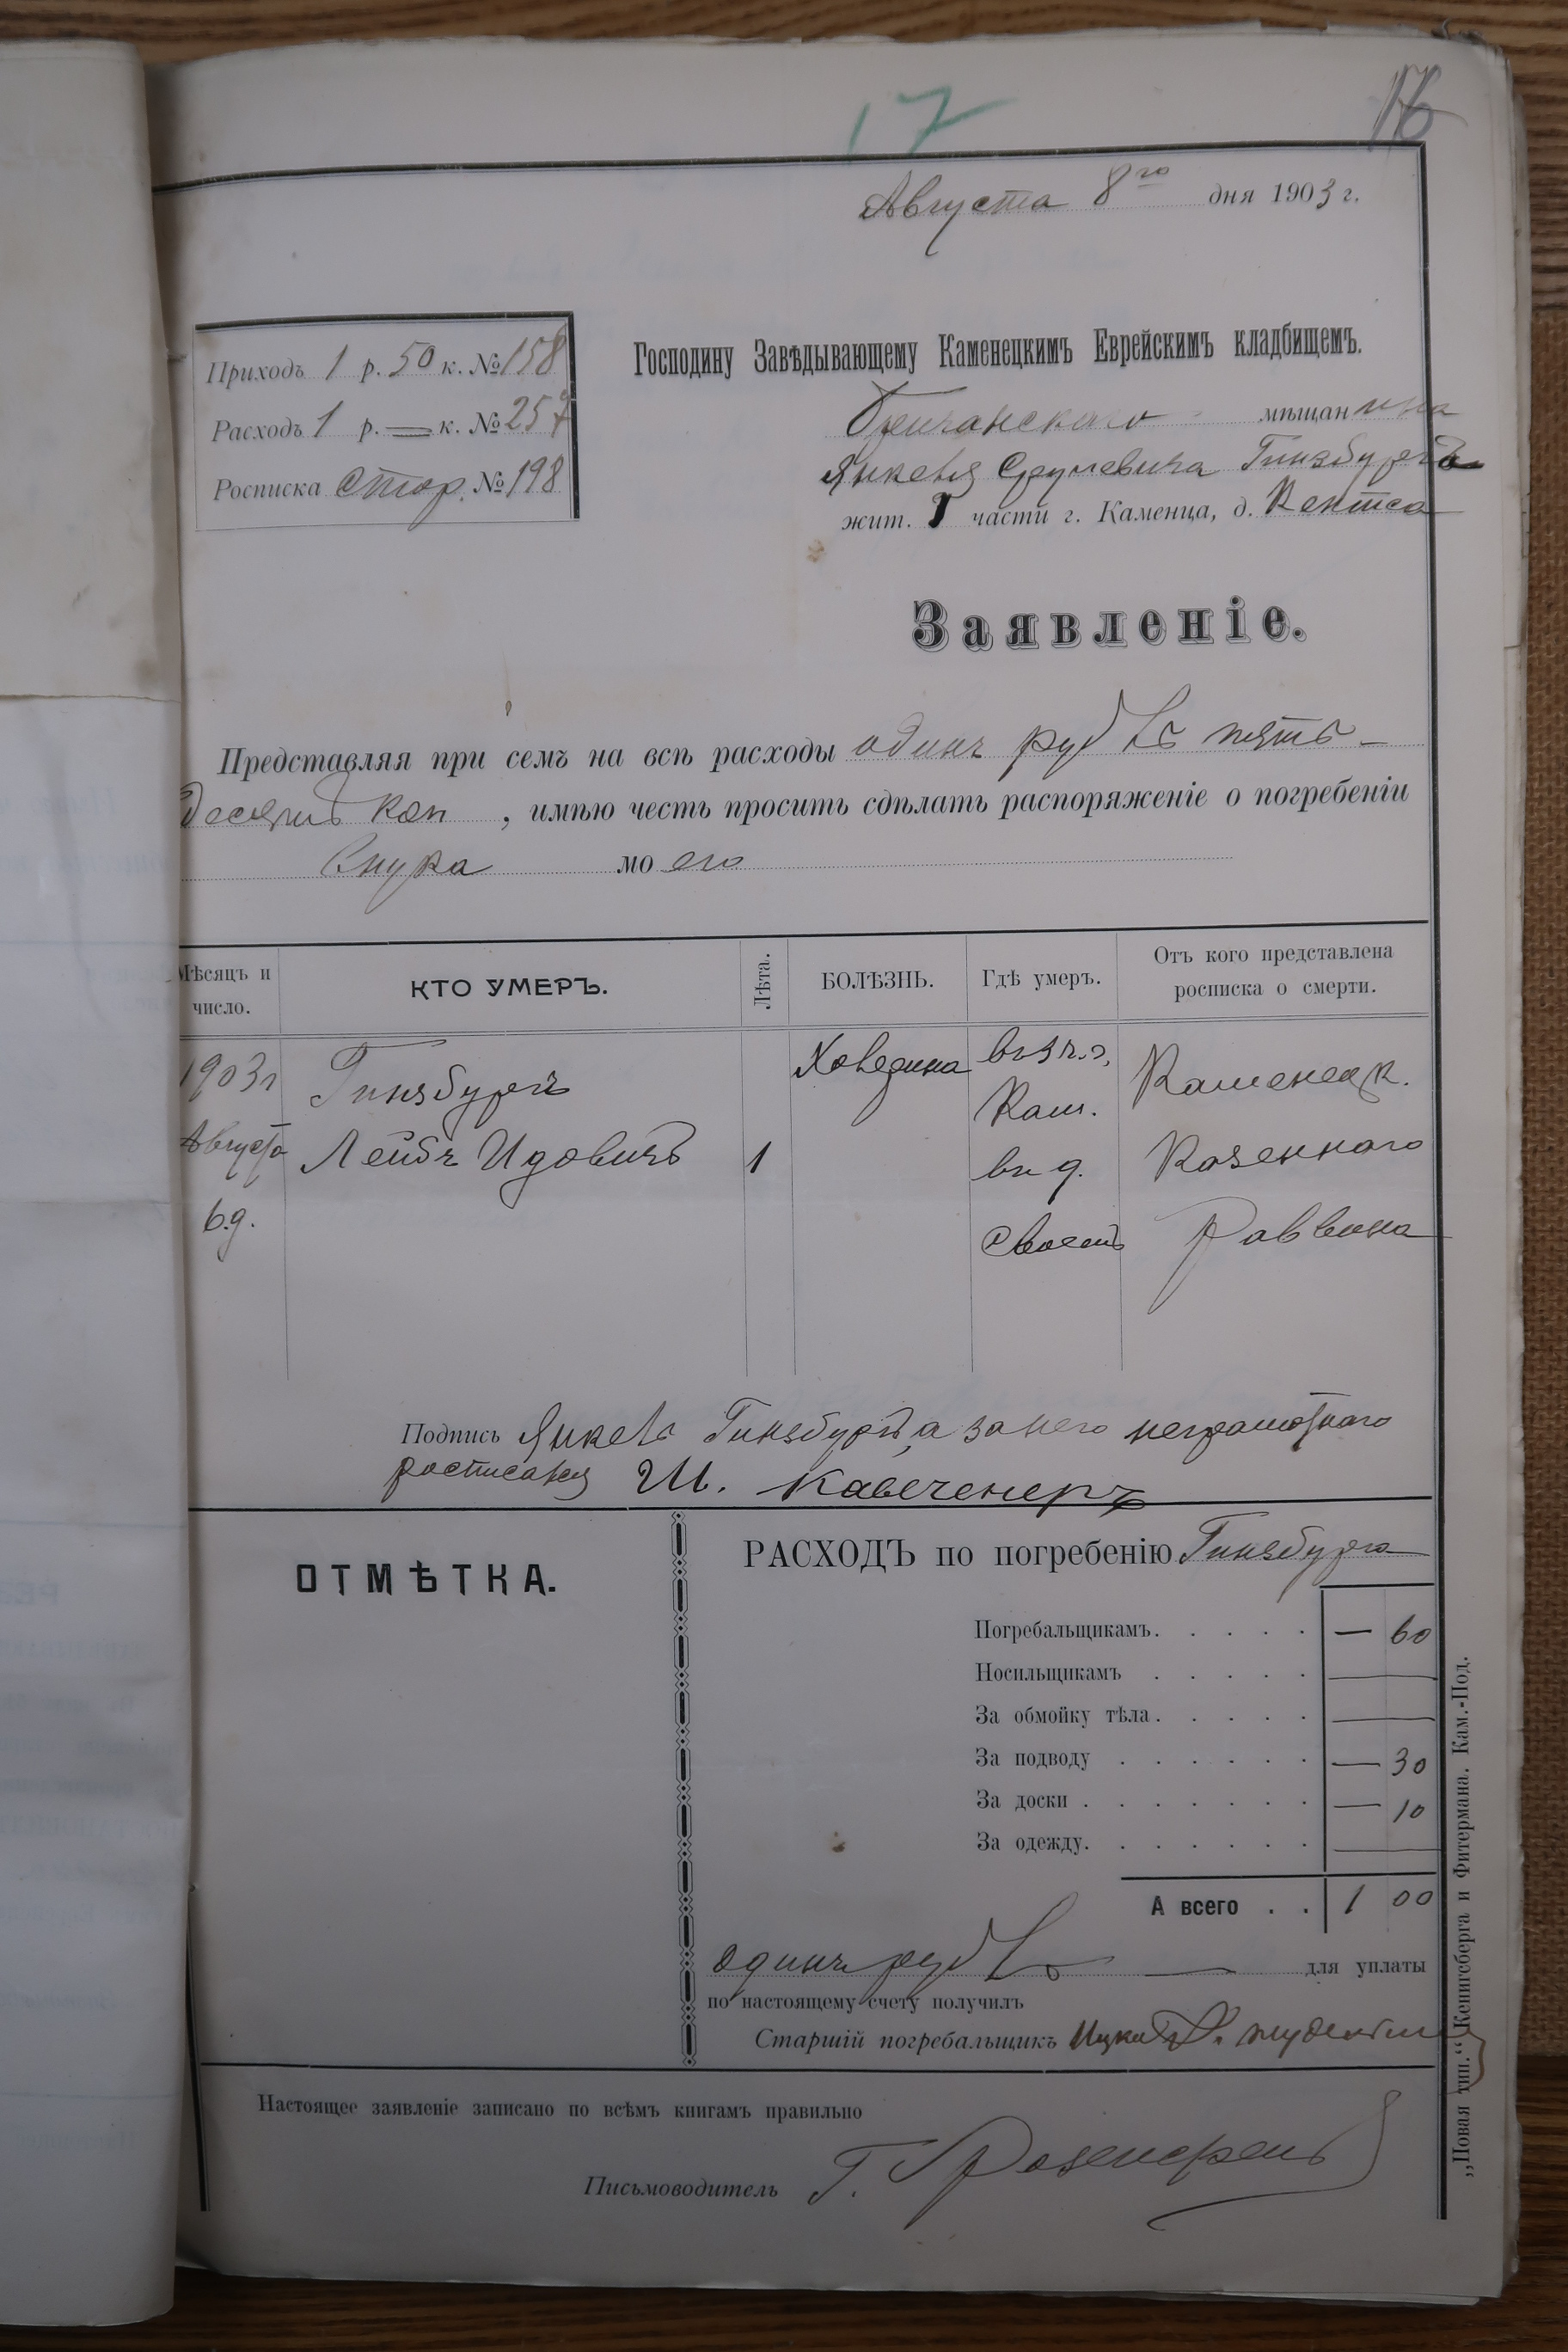 17
16
Августа 8го дня 1903 г.
Приходъ 1 р. 50 к. № 158
Расходъ 1 р. — к. № 257
Росписка стор. № 198
Господину Завѣдывающему Каменецкимъ Еврейскимъ кладбищемъ.
мѣщанина
Янкеля Сруловича Гинзбургъ
жит. I части г. Каменца, д.
Заявленіе.
Представляя при семъ на всѣ расходы одинъ рубль пять-
десятъ коп , имѣю честь просить сдѣлать распоряженіе о погребеніи
внука моего
Мѣсяцъ и число.
КТО УМЕРЪ.
Лѣта.
БОЛѢЗНЬ.
Гдѣ умеръ.
Отъ кого представлена росписка о смерти.
1903 г
Августа
6 д.
Гинзбургъ
Лейбъ Идовичъ
1
Кам.
въ д.
своемъ
Каменецк.
Казеннаго
Раввина
Подпись Янкель Гинзбургъ, а за него неграмотнаго
росписался Ш.
ОТМѢТКА.
РАСХОДЪ по погребенію Гинзбурга
Погребальщикамъ. — 60
Носильщикамъ —
За обмойку тѣла. —
За подводу — 30
За доски — 10
За одежду. —
А всего . . 1 00
одинъ рубль — для уплаты
по настоящему счету получилъ
Старшій погребальщикъ
Настоящее заявленіе записано по всѣмъ книгамъ правильно
Письмоводитель Г.
„Новая тип.“ Кенигсберга и Фитермана. Кам.-Под.